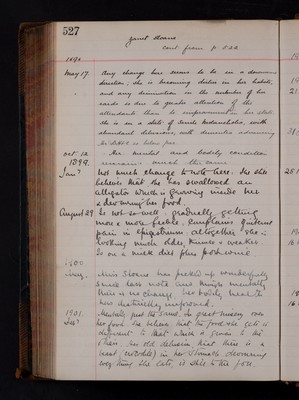 527
Janet Sloane
cont from p. 522
1898
May 17. Any change here seems to be in a downward
direction, she is becoming dirtier in her habits,
and any diminution in the number of her
is due to greater attention of the
attendants than to improvement in her state.
She is in a state of Senile Melancholia, with
abundant delusions, with dementia advancing
Oct. 12. - Her mental and bodily condition
remains much the same
1899.
Jan Not much change to note here. She still
believes that she has swallowed an
alligator which is growing inside her
& devouring her food.
August 29. Is not so well, gradually getting
more & more feeble. Complains of intense
pain in epigastrium: altogether she is
looking much older, thinner & weaker.
Is on a milk diet plus port wine
1900
has picked up wonderfully
since last note and though mentally
there is no change her bodily health
has distinctly improved.
1901.
Mentally just the same. In great misery over
her food. She believes that the food she gets is
different to that which is given to the
others. The old delusion, that there is a
beast (crocodile) in her stomach devouring
every thing she eats, is still to the fore.